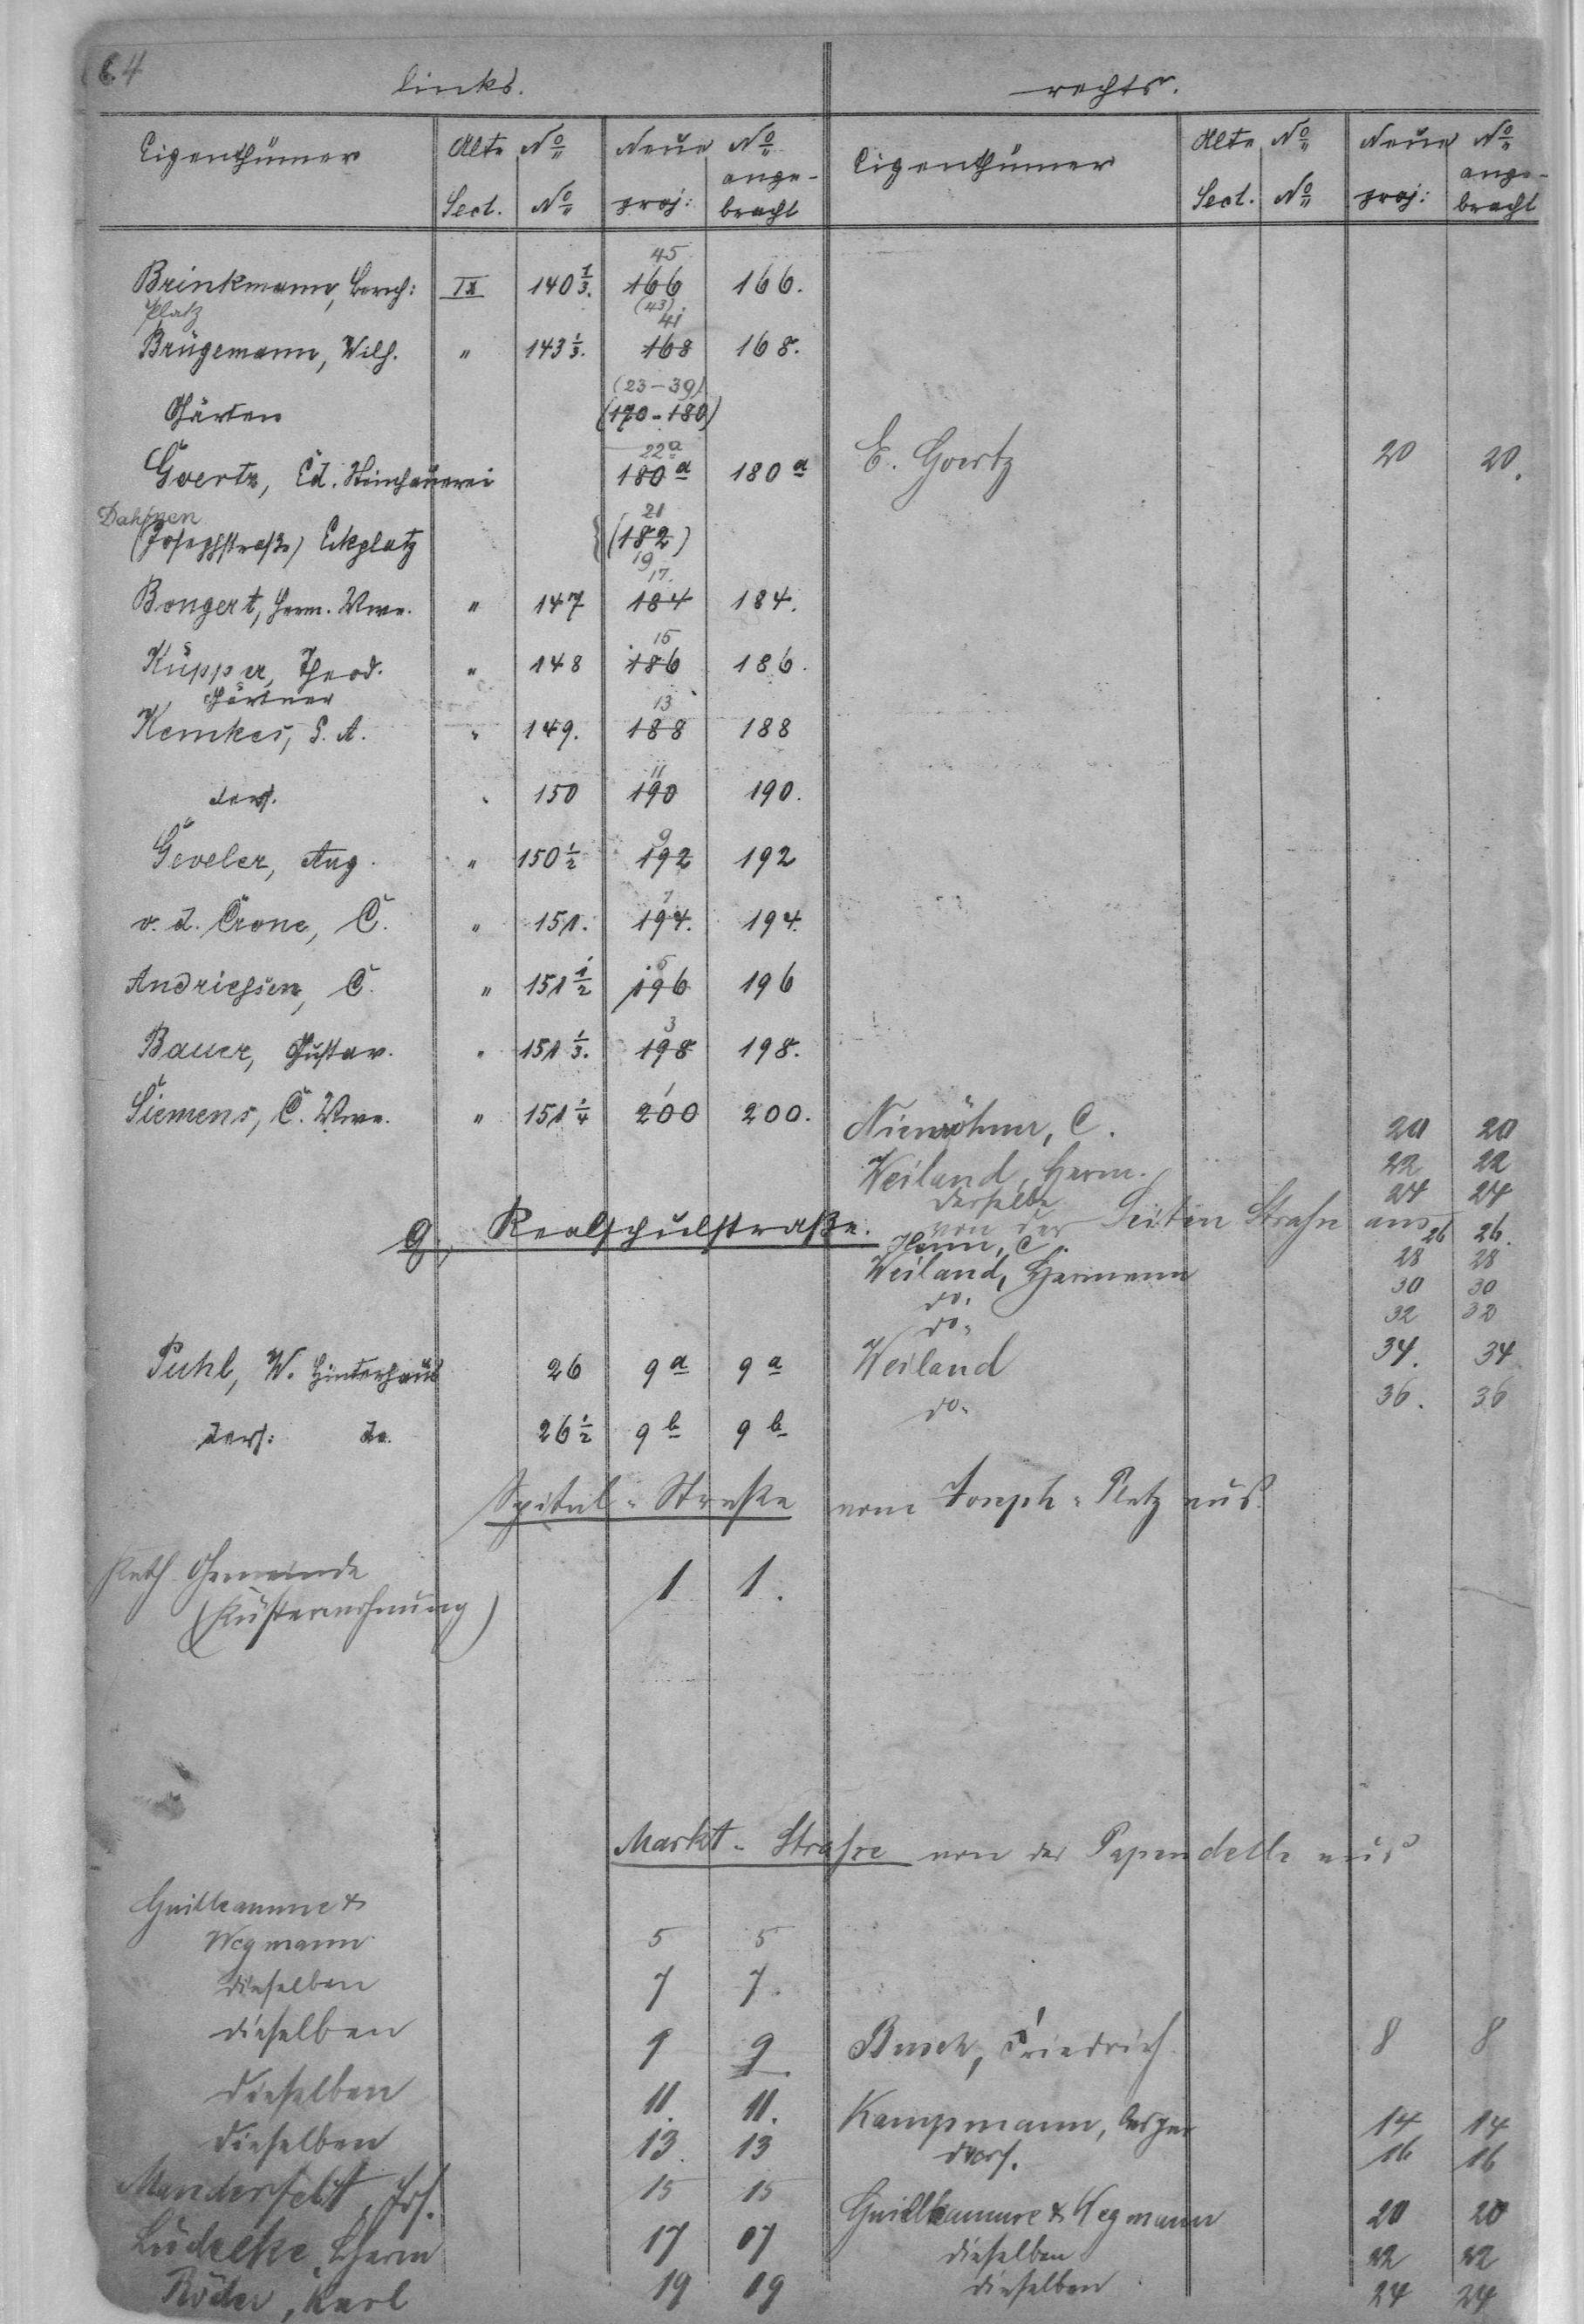 64
links. rechts.
Eigenthümer Alte No Neue No Eigenthümer Alte No Neue No
Sect. No proj: ange-bracht Sect. No proj: ange-bracht
45
Brinkmann, Bernh: IX 140 1/3. 166 166.
Platz (43)
41
Brügemann, Wilh. " 143 1/3. 168 168.
(23-39)
Gärten (170-180)
22a
Goertz, Ed. Steinhauerei 180a 180a E. Goertz 20 20.
Dahmen 21
(Josephstraße) Eckplatz (182)
19
17.
Bongert, Herm. Wwe. " 147 184 184.
15
Küpper, Theod. " 148 186 186.
Gärtner 13
Kemkes, P. A. " 149. 188 188
11
ders. " 150 190 190.
9
Geveler, Aug. " 150 1/2 192 192
7
v. d. Crone, C. " 151. 194. 194.
5
Andriessen, C. " 151 1/2 196 196
3
Bauer, Gustav. " 151 1/3. 198 198.
1
Siemens, C. Wwe. " 151 1/4 200 200.
Nienöhner, C. 20 20
Weiland, Herm. 22 22
derselbe 24 24
9, Realschulstraße. von der Seiten Straße aus
Henn, C. 26 26.
Weiland, Hermann 28 28
do. 30 30
do. 32 32
Puhl, W. Hinterhaus 26 9a 9a Weiland 34. 34
do. 36. 36
ders: do. 26 1/2 9b 9b
Spital-Straße vom Joseph-Platz aus.
Kath. Gemeinde 1 1.
(Küsterwohnung)
Markt-Straße von der Papendelle aus
Guilleaumme &
Wegmann 5 5
dieselben 7 7.
dieselben 9 9 Busch, Friedrich 8 8
dieselben 11. 11. Kampmann, 14 14
dieselben 13. 13 ders. 16 16
Manderfeldt, Jos. 15 15 Guilleaumme & Wegmann 20 20
Lüdecke, Herm 17 17 dieselben 22 22
Röder, Karl 19 19 dieselben 24 24